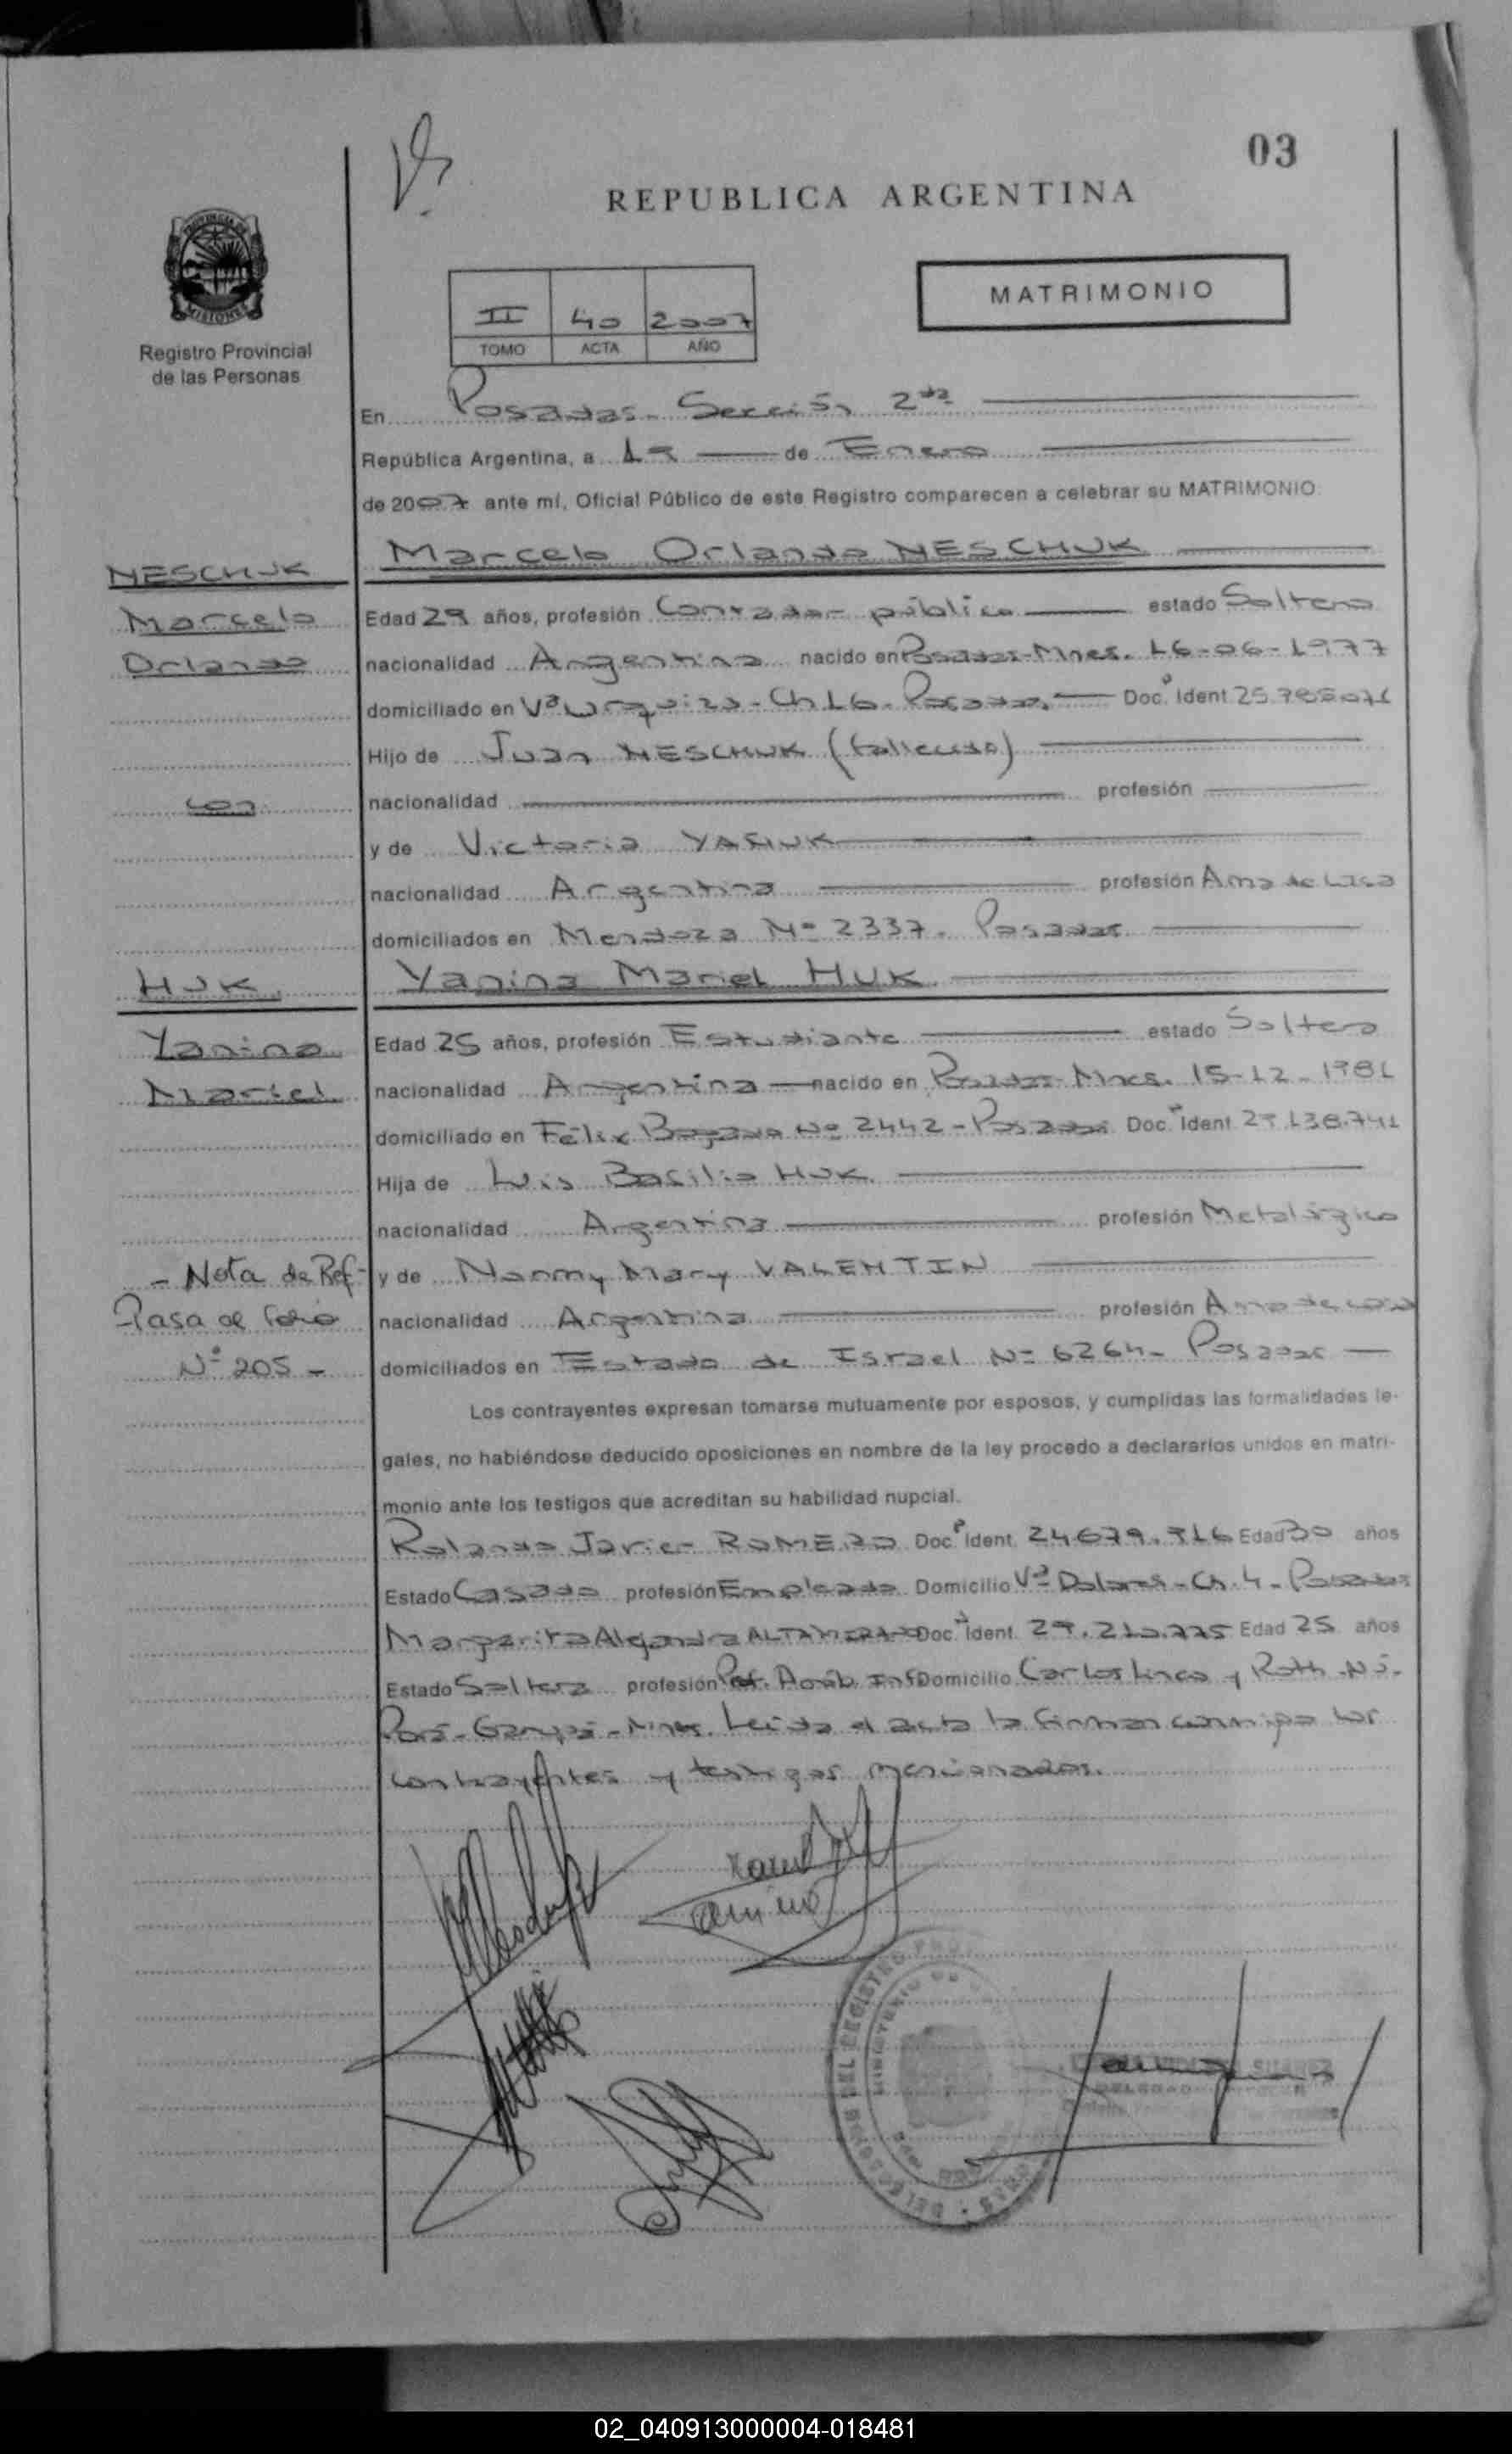 03
REPUBLICA ARGENTINA
MATRIMONIO
II 40 2007
TOMO ACTA AÑO
Registro Provincial
de las Personas
En Posadas - Sección 2da
República Argentina, a 19 de Enero
de 2007 ante mí, Oficial Público de este Registro comparecen a celebrar su MATRIMONIO
Marcelo Orlando NESCHUK
NESCHUK
Marcelo
Orlando
con
HUK
Yanina
Mariel
- Nota de Ref-
Pasa al folio
N° 205 -
Edad 29 años, profesión Contador público estado Soltero
nacionalidad Argentina nacido en Posadas-Mnes. 16-06-1977
domiciliado en Vª Urquiza - Ch 16. Posadas. Doc. Ident 25.785071
Hijo de Juan NESCHUK (fallecido)
nacionalidad profesión
y de Victoria YASIUK
nacionalidad Argentina profesión Ama de Casa
domiciliados en Mendoza Nº 2337. Posadas
Yanina Mariel HUK
Edad 25 años, profesión Estudiante estado Soltera
nacionalidad Argentina nacido en Posadas-Mnes. 15-12-1981
domiciliado en Félix Bogado Nº 2442 - Posadas Doc. Ident 29.138.741
Hija de Luis Basilio HUK
nacionalidad Argentina profesión Metalúrgico
y de Nanmy Mary VALENTIN
nacionalidad Argentina profesión Ama de casa
domiciliados en Estado de Israel Nº 6264 - Posadas
Los contrayentes expresan tomarse mutuamente por esposos, y cumplidas las formalidades le-
gales, no habiéndose deducido oposiciones en nombre de la ley procedo a declararlos unidos en matri-
monio ante los testigos que acreditan su habilidad nupcial.
Rolando Javier ROMERO Doc. Ident. 24.679.916 Edad 30 años
Estado Casado profesión Empleado Domicilio Vª Dolores - Ch. 4 - Posadas
Margarita Alejandra ALTAMIRANO Doc. Ident. 29.210.775 Edad 25 años
Estado Soltera profesión Domicilio Carlos Linco y Roth
Garupá - Mnes. Leída el acta la firman conmigo los
contrayentes y testigos mencionados.
02_040913000004-018481